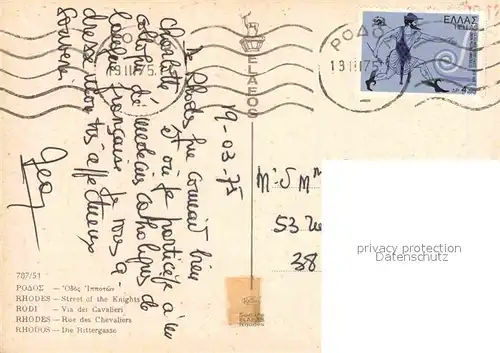 19-03-75
de Rhodes que connait bien
Charlotte et où je participe à un
colloque de médecins catholiques de
langue française je vous a-
dresse mon très affectueux
souvenir
ELAFOS
ΡΟΔΟ
19 III 75
ΡΟΔΟ
19 III 75
ΕΛΛΑΣ
HELLAS
M. & Mme
53
38
privacy protection
Datenschutz
707/51
ΡΟΔΟΣ — Ὁδὸς Ἱπποτῶν
RHODES — Street of the Knights
RODI — Via dei Cavalieri
RHODES — Rue des Chevaliers
RHODOS — Die Rittergasse
Rhodes